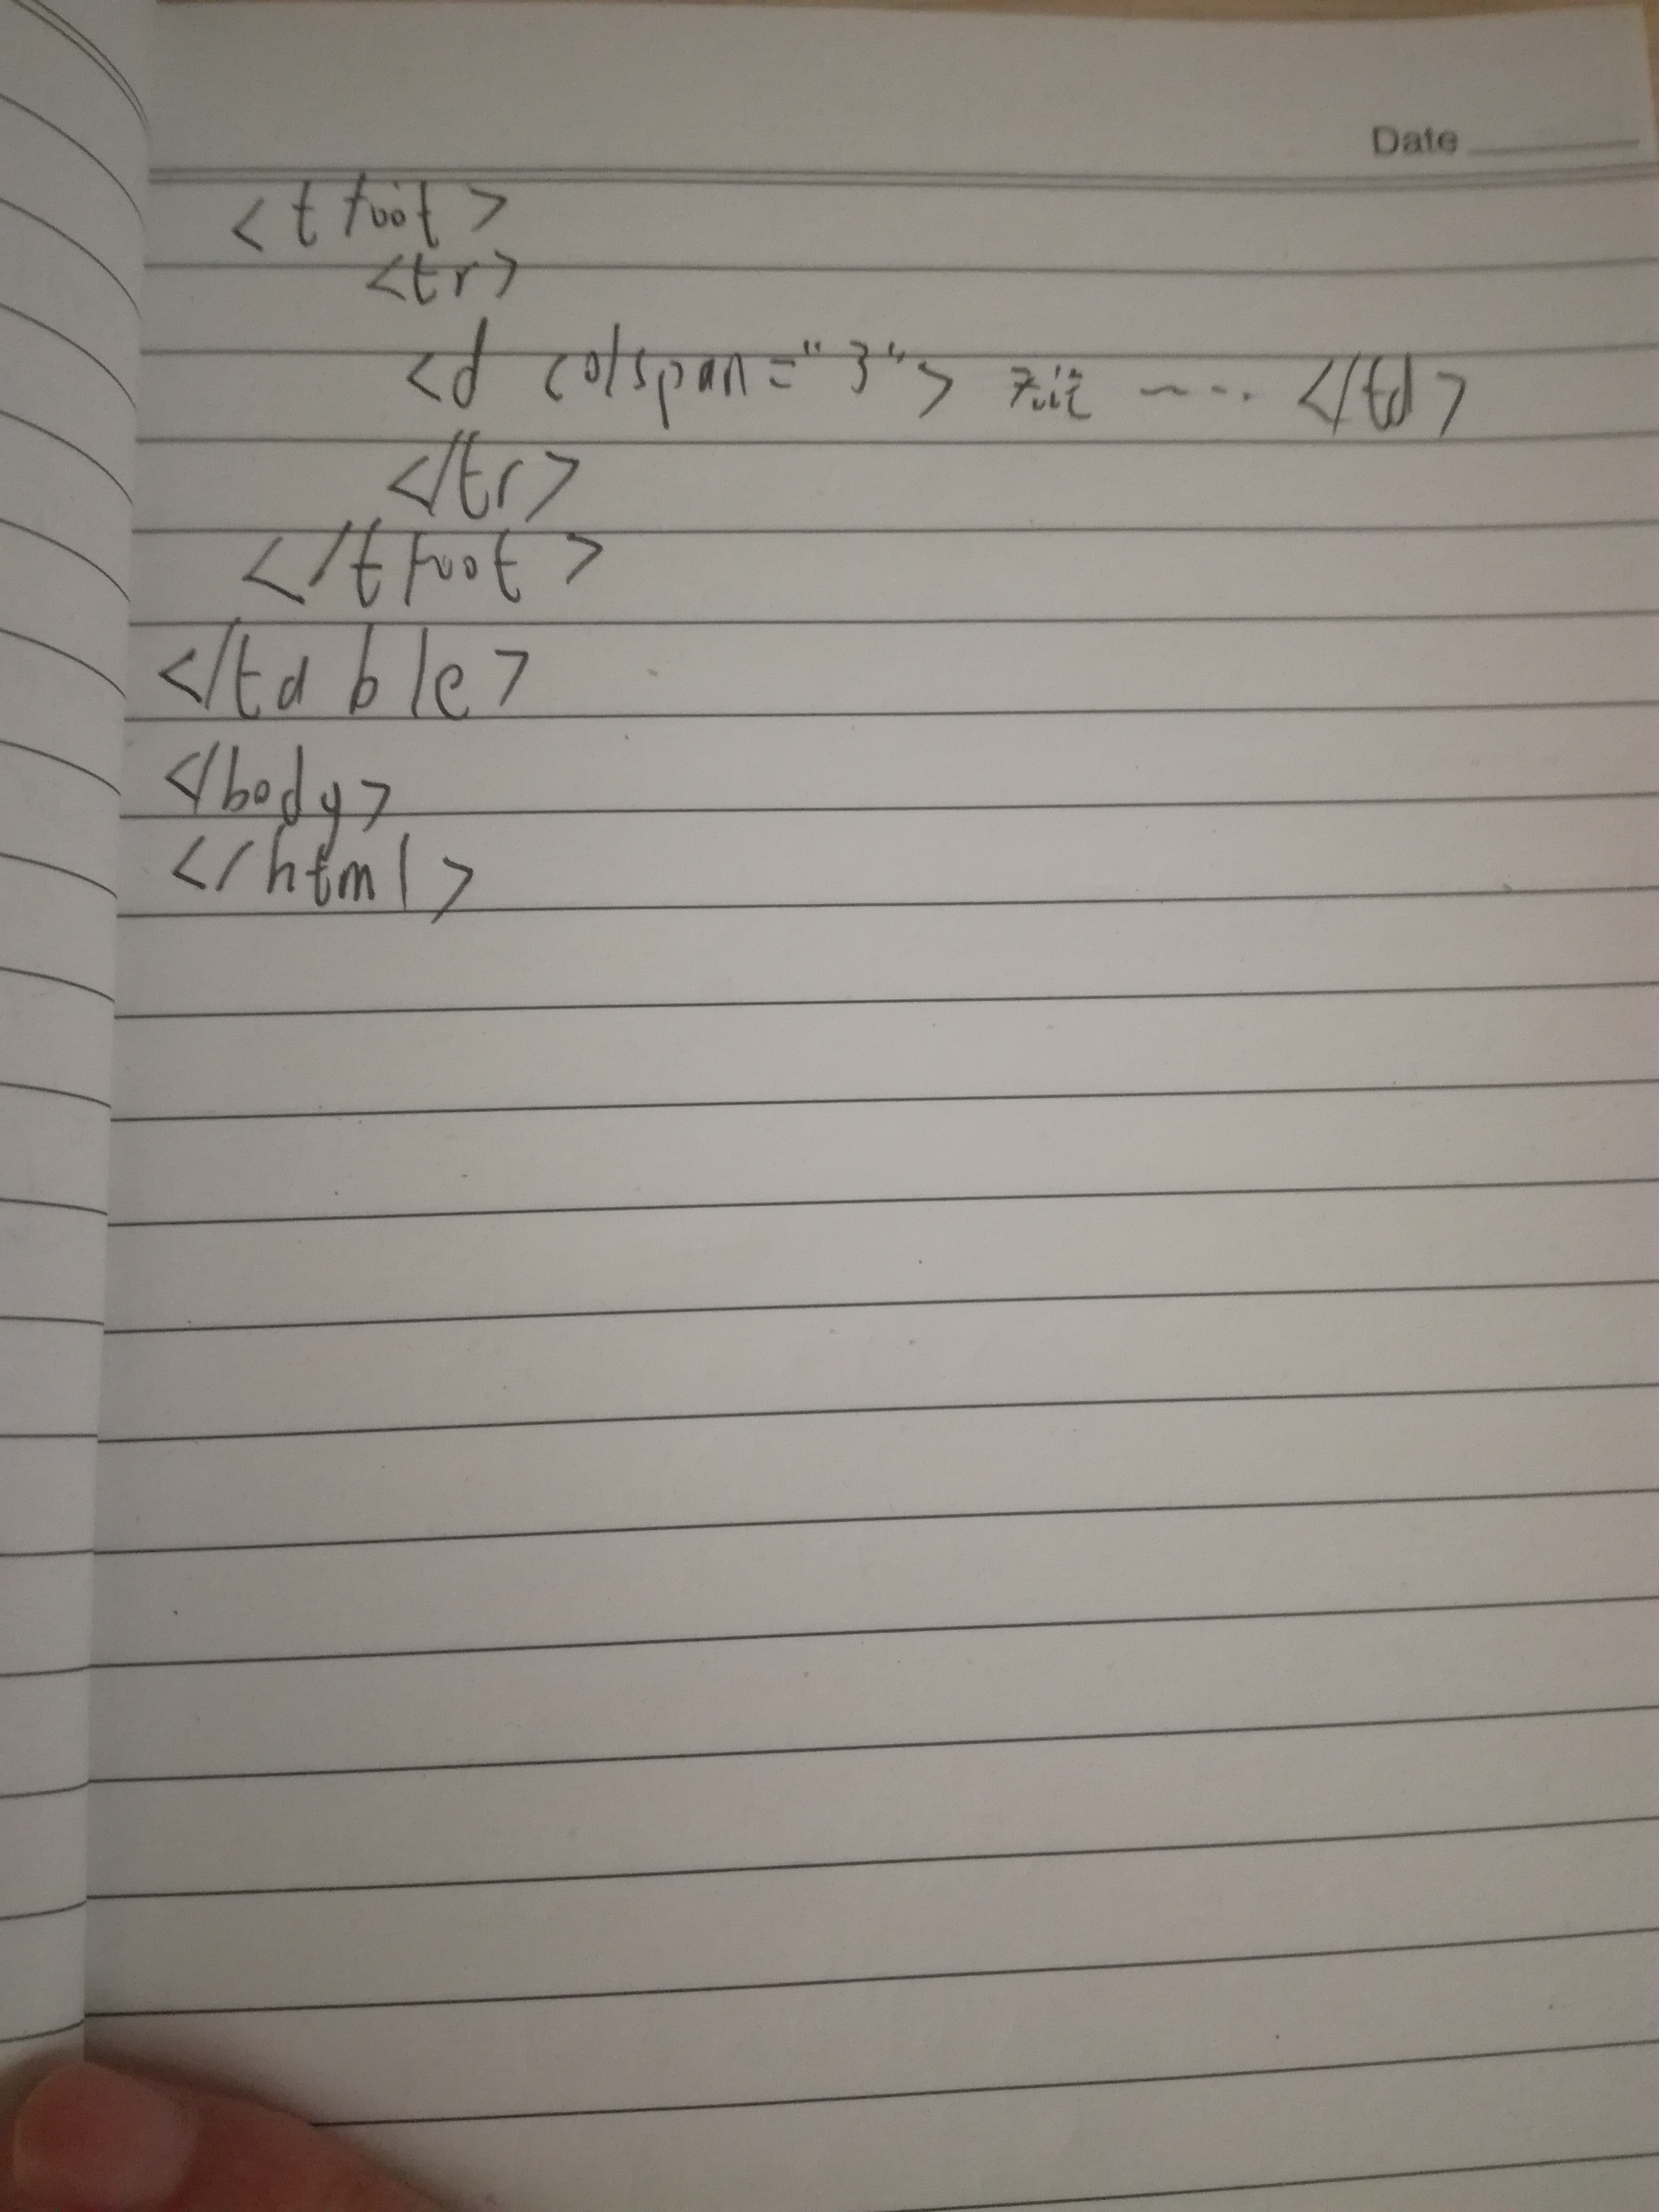 Date
<tfoot>
<tr>
<d colspan="3"> ---- </td>
</tr>
</tfoot>
</table>
</body>
</html>